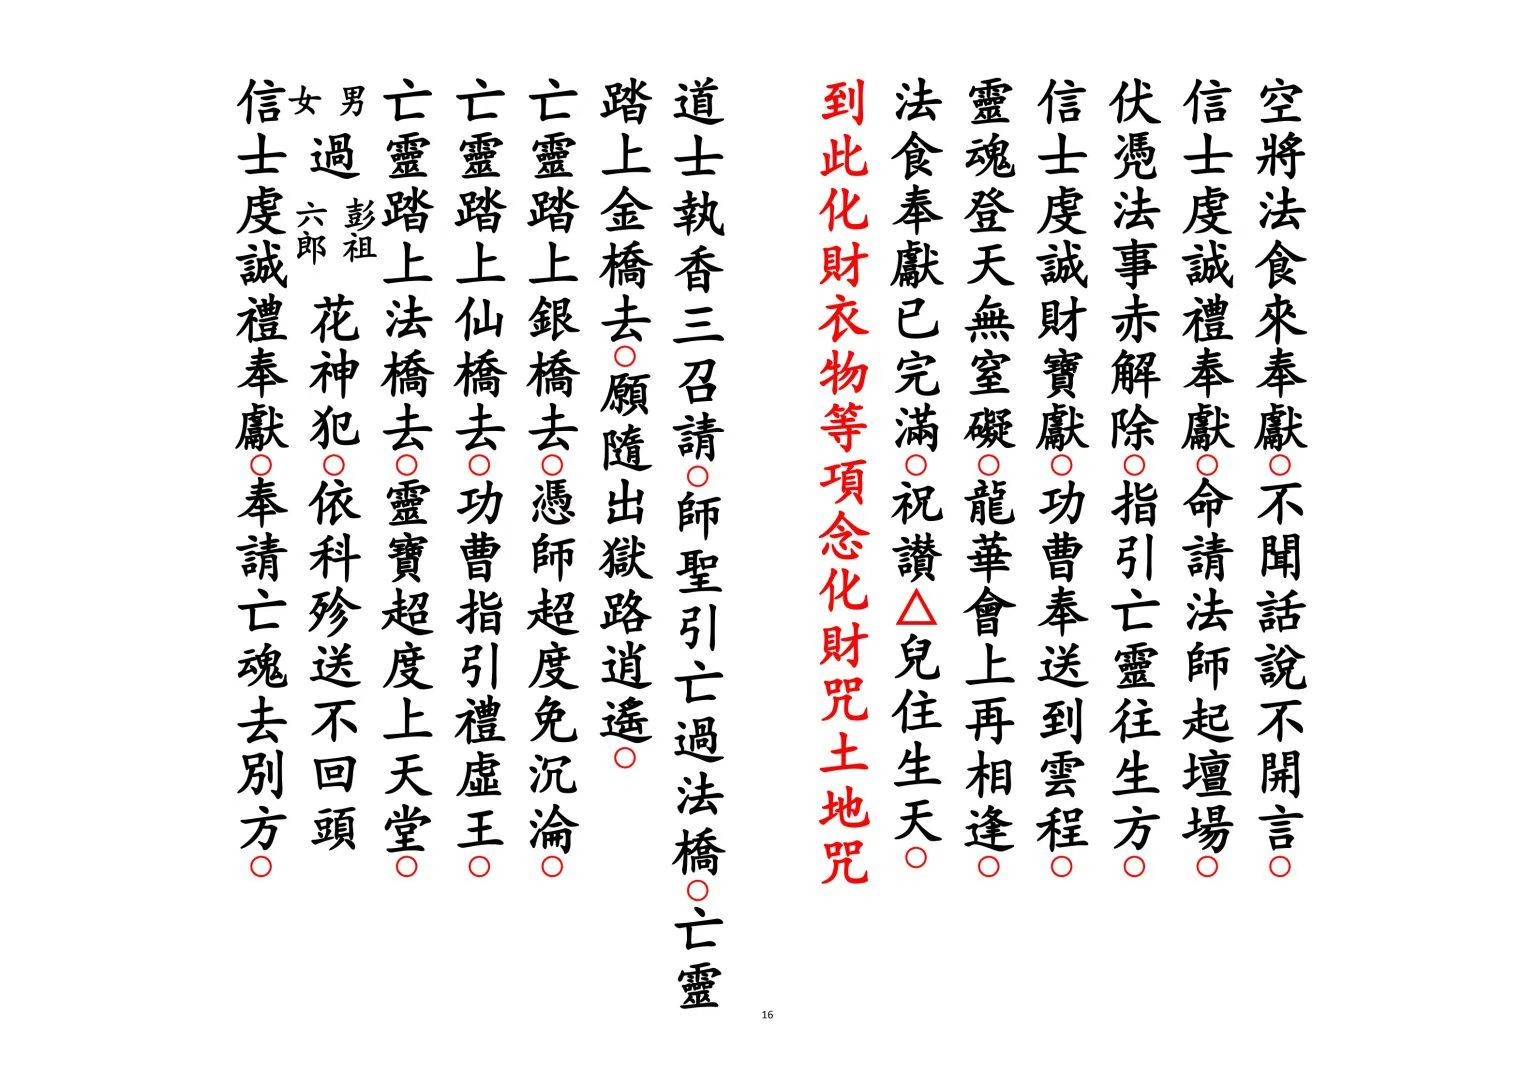 空將法食來奉獻○不聞話說不開言○
信士虔誠禮奉獻○命請法師起壇場○
伏凴法事赤解除○指引亡靈往生方○
信士虔誠財寶獻○功曹奉送到雲程○
靈魂登天無窒礙○龍華會上再相逢○
法食奉獻已完滿○祝讃△兒住生天○
到此化財衣物等項念化財咒土地咒
道士執香三召請○師聖引亡過法橋○亡靈
踏上金橋去○願隨出獄路逍遙○
亡靈踏上銀橋去○憑師超度免沉淪○
亡靈踏上仙橋去○功曹指引禮虛王○
亡靈踏上法橋去○靈寶超度上天堂○
男女過彭祖六郎花神犯○依科殄送不回頭
信士虔誠禮奉獻○奉請亡魂去別方○
16